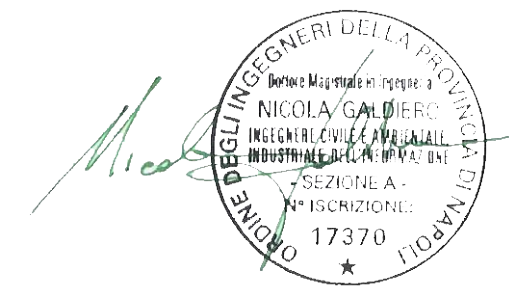 ORDINE DEGLI INGEGNERI DELLA PROVINCIA DI NAPOLI
Dottore Magistrale in Ingegneria
NICOLA GALDIERO
INGEGNERE CIVILE E AMBIENTALE
INDUSTRIALE DELL'INFORMAZIONE
- SEZIONE A -
N° ISCRIZIONE:
17370
Nicola